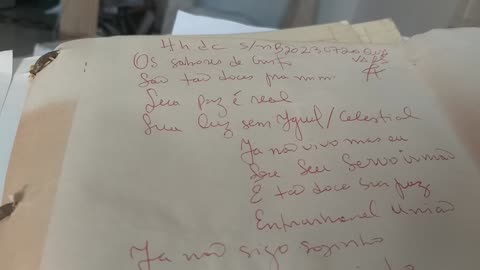 Os sabores de Cristo
São tão doces pra mim
Seu paz é real
Sua luz sem Igual/Celestial
Ja não vivo mas eu
Sou seu servo irmão
E tão doce sua paz
Entranhavel União
Ja não sigo sozinho